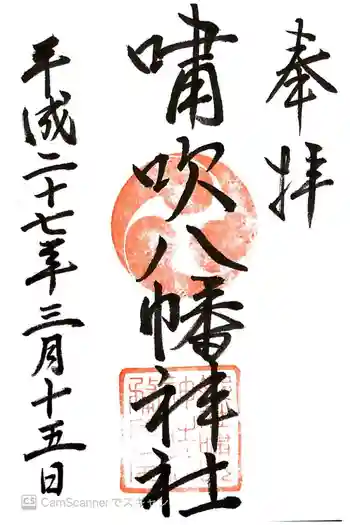 奉拝
嘯吹八幡神社
平成二十七年三月十五日
CS CamScanner でスキャン